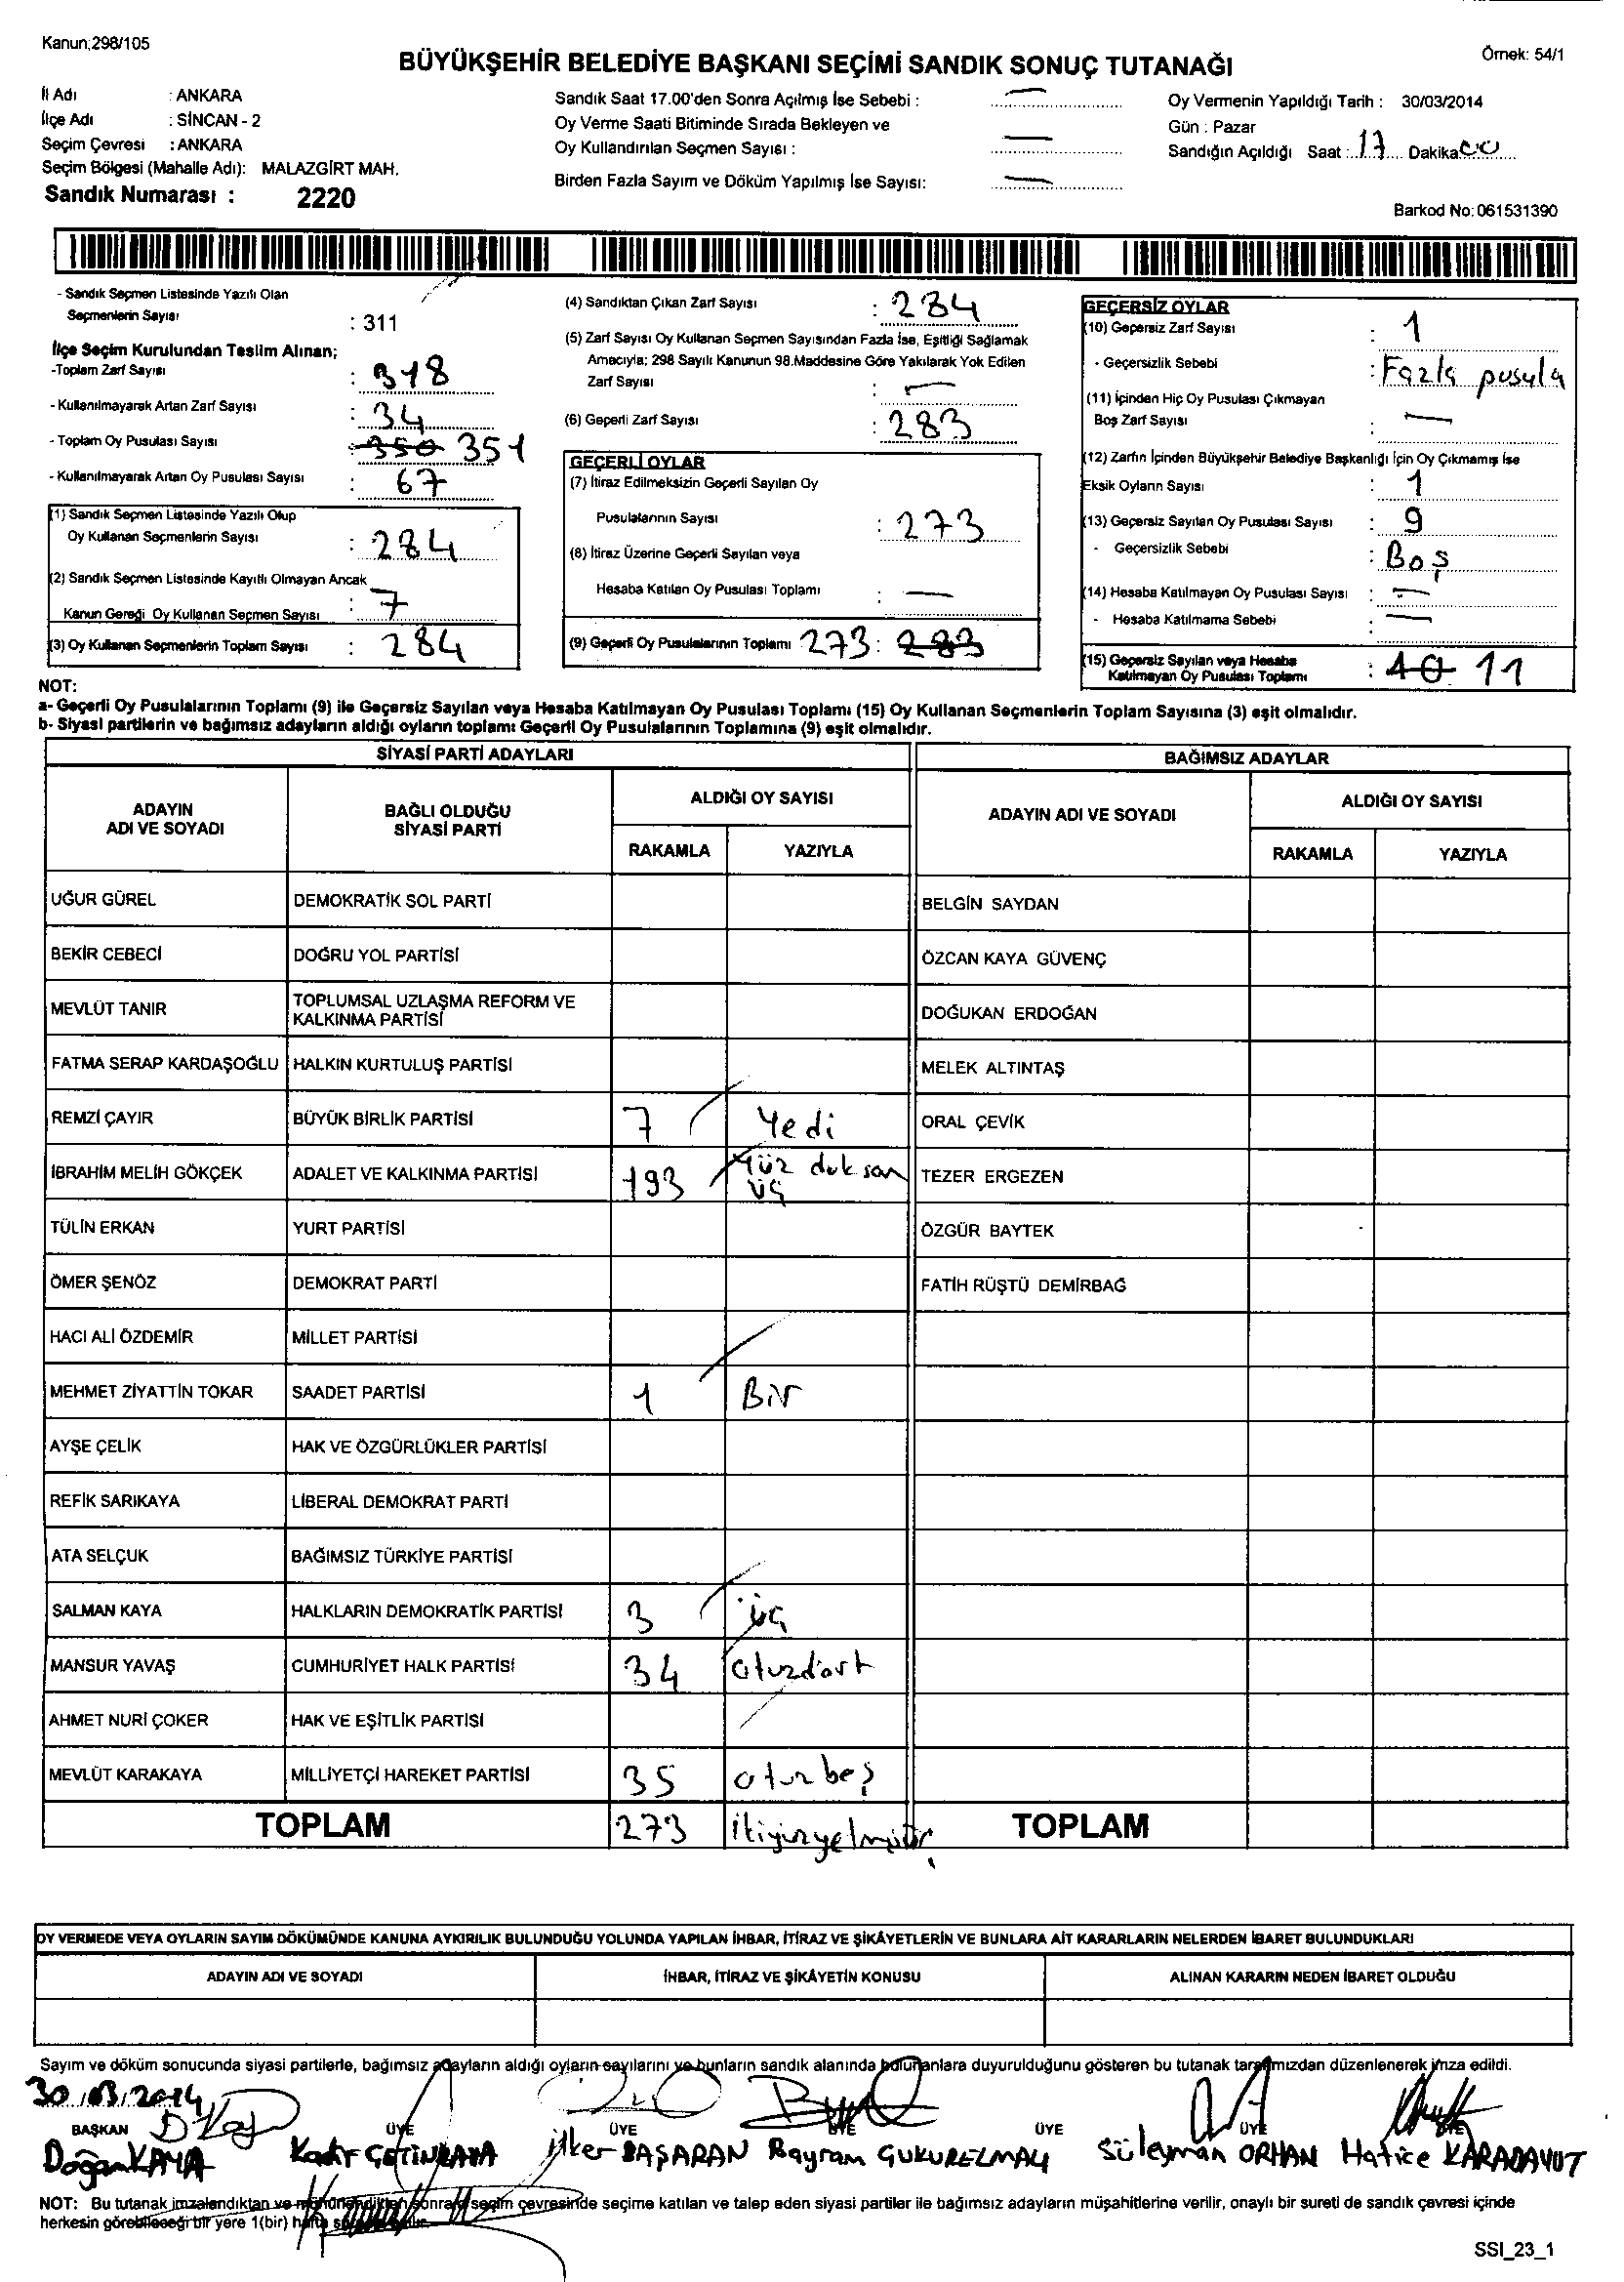 Kanun;298/105
Örnek: 54/1
BÜYÜKŞEHİR BELEDİYE BAŞKANI SEÇİMİ SANDIK SONUÇ TUTANAĞI
İl Adı : ANKARA
İlçe Adı : SİNCAN - 2
Seçim Çevresi : ANKARA
Seçim Bölgesi (Mahalle Adı): MALAZGİRT MAH.
Sandık Numarası : 2220
Sandık Saat 17.00'den Sonra Açılmış İse Sebebi : —
Oy Verme Saati Bitiminde Sırada Bekleyen ve
Oy Kullandırılan Seçmen Sayısı : —
Birden Fazla Sayım ve Döküm Yapılmış İse Sayısı: —
Oy Vermenin Yapıldığı Tarih : 30/03/2014
Gün : Pazar
Sandığın Açıldığı Saat : 17 Dakika 00
Barkod No: 061531390
- Sandık Seçmen Listesinde Yazılı Olan
Seçmenlerin Sayısı : 311
İlçe Seçim Kurulundan Teslim Alınan;
-Toplam Zarf Sayısı : 318
- Kullanılmayarak Artan Zarf Sayısı : 34
- Toplam Oy Pusulası Sayısı : 350 351
- Kullanılmayarak Artan Oy Pusulası Sayısı : 67
(1) Sandık Seçmen Listesinde Yazılı Olup
Oy Kullanan Seçmenlerin Sayısı : 284
(2) Sandık Seçmen Listesinde Kayıtlı Olmayan Ancak
Kanun Gereği Oy Kullanan Seçmen Sayısı : 7
(3) Oy Kullanan Seçmenlerin Toplam Sayısı : 284
(4) Sandıktan Çıkan Zarf Sayısı : 284
(5) Zarf Sayısı Oy Kullanan Seçmen Sayısından Fazla İse, Eşitliği Sağlamak
Amacıyla; 298 Sayılı Kanunun 98.Maddesine Göre Yakılarak Yok Edilen
Zarf Sayısı : —
(6) Geçerli Zarf Sayısı : 283
GEÇERLİ OYLAR
(7) İtiraz Edilmeksizin Geçerli Sayılan Oy
Pusulalarının Sayısı : 273
(8) İtiraz Üzerine Geçerli Sayılan veya
Hesaba Katılan Oy Pusulası Toplamı : —
(9) Geçerli Oy Pusulalarının Toplamı 273 : 283
GEÇERSİZ OYLAR
(10) Geçersiz Zarf Sayısı : 1
- Geçersizlik Sebebi : Fazla pusula
(11) İçinden Hiç Oy Pusulası Çıkmayan
Boş Zarf Sayısı : —
(12) Zarfın İçinden Büyükşehir Belediye Başkanlığı İçin Oy Çıkmamış İse
Eksik Oyların Sayısı : 1
(13) Geçersiz Sayılan Oy Pusulası Sayısı : 9
- Geçersizlik Sebebi : Boş
(14) Hesaba Katılmayan Oy Pusulası Sayısı : —
- Hesaba Katılmama Sebebi : —
(15) Geçersiz Sayılan veya Hesaba
Katılmayan Oy Pusulası Toplamı : 10 11
NOT:
a- Geçerli Oy Pusulalarının Toplamı (9) ile Geçersiz Sayılan veya Hesaba Katılmayan Oy Pusulası Toplamı (15) Oy Kullanan Seçmenlerin Toplam Sayısına (3) eşit olmalıdır.
b- Siyasi partilerin ve bağımsız adayların aldığı oyların toplamı Geçerli Oy Pusulalarının Toplamına (9) eşit olmalıdır.
SİYASİ PARTİ ADAYLARI
BAĞIMSIZ ADAYLAR
ADAYIN ADI VE SOYADI
BAĞLI OLDUĞU SİYASİ PARTİ
ALDIĞI OY SAYISI
RAKAMLA YAZIYLA
ADAYIN ADI VE SOYADI
ALDIĞI OY SAYISI
RAKAMLA YAZIYLA
UĞUR GÜREL DEMOKRATİK SOL PARTİ BELGİN SAYDAN
BEKİR CEBECİ DOĞRU YOL PARTİSİ ÖZCAN KAYA GÜVENÇ
MEVLÜT TANIR TOPLUMSAL UZLAŞMA REFORM VE KALKINMA PARTİSİ DOĞUKAN ERDOĞAN
FATMA SERAP KARDAŞOĞLU HALKIN KURTULUŞ PARTİSİ MELEK ALTINTAŞ
REMZİ ÇAYIR BÜYÜK BİRLİK PARTİSİ 7 Yedi ORAL ÇEVİK
İBRAHİM MELİH GÖKÇEK ADALET VE KALKINMA PARTİSİ 193 Yüz doksan üç TEZER ERGEZEN
TÜLİN ERKAN YURT PARTİSİ ÖZGÜR BAYTEK
ÖMER ŞENÖZ DEMOKRAT PARTİ FATİH RÜŞTÜ DEMİRBAĞ
HACI ALİ ÖZDEMİR MİLLET PARTİSİ
MEHMET ZİYATTİN TOKAR SAADET PARTİSİ 1 Bir
AYŞE ÇELİK HAK VE ÖZGÜRLÜKLER PARTİSİ
REFİK SARIKAYA LİBERAL DEMOKRAT PARTİ
ATA SELÇUK BAĞIMSIZ TÜRKİYE PARTİSİ
SALMAN KAYA HALKLARIN DEMOKRATİK PARTİSİ 3 üç
MANSUR YAVAŞ CUMHURİYET HALK PARTİSİ 34 otuzdört
AHMET NURİ ÇOKER HAK VE EŞİTLİK PARTİSİ
MEVLÜT KARAKAYA MİLLİYETÇİ HAREKET PARTİSİ 35 otuzbeş
TOPLAM 273 TOPLAM
OY VERMEDE VEYA OYLARIN SAYIM DÖKÜMÜNDE KANUNA AYKIRILIK BULUNDUĞU YOLUNDA YAPILAN İHBAR, İTİRAZ VE ŞİKÂYETLERİN VE BUNLARA AİT KARARLARIN NELERDEN İBARET BULUNDUKLARI
ADAYIN ADI VE SOYADI İHBAR, İTİRAZ VE ŞİKÂYETİN KONUSU ALINAN KARARIN NEDEN İBARET OLDUĞU
Sayım ve döküm sonucunda siyasi partilerle, bağımsız adayların aldığı oyların sayılarını ve bunların sandık alanında bulunanlara duyurulduğunu gösteren bu tutanak tarafımızdan düzenlenerek imza edildi.
30.03.2014
BAŞKAN ÜYE ÜYE ÜYE ÜYE ÜYE
Doğan KAYA Kadir ÇETİNKAYA İlker BAŞARAN Bayram ÇUKURELMALI Süleyman ORHAN Hatice KARADAVUT
NOT: Bu tutanak imzalandıktan ve mühürlendikten sonra seçim çevresinde seçime katılan ve talep eden siyasi partiler ile bağımsız adayların müşahitlerine verilir, onaylı bir sureti de sandık çevresi içinde
herkesin görebileceği bir yere 1(bir) hafta
SSI_23_1